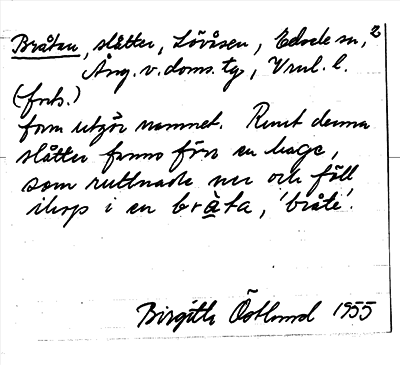 Bråtan, slåtter, Lövåsen, Edsele sn, 2
Ång. v. doms. tg, Vml. l.
(forts.)
form utgör namnet. Runt denna
slåtter fanns förr en hage,
som ruttnade ner och föll
ihop i en bråta, 'bråte'.
Birgitta Östlund 1955